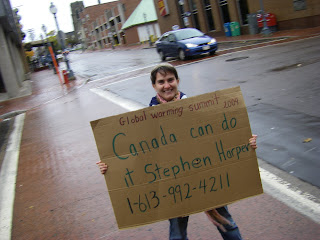 Global warming summit 2009
Canada can do
it Stephen Harper
1-613-992-4211